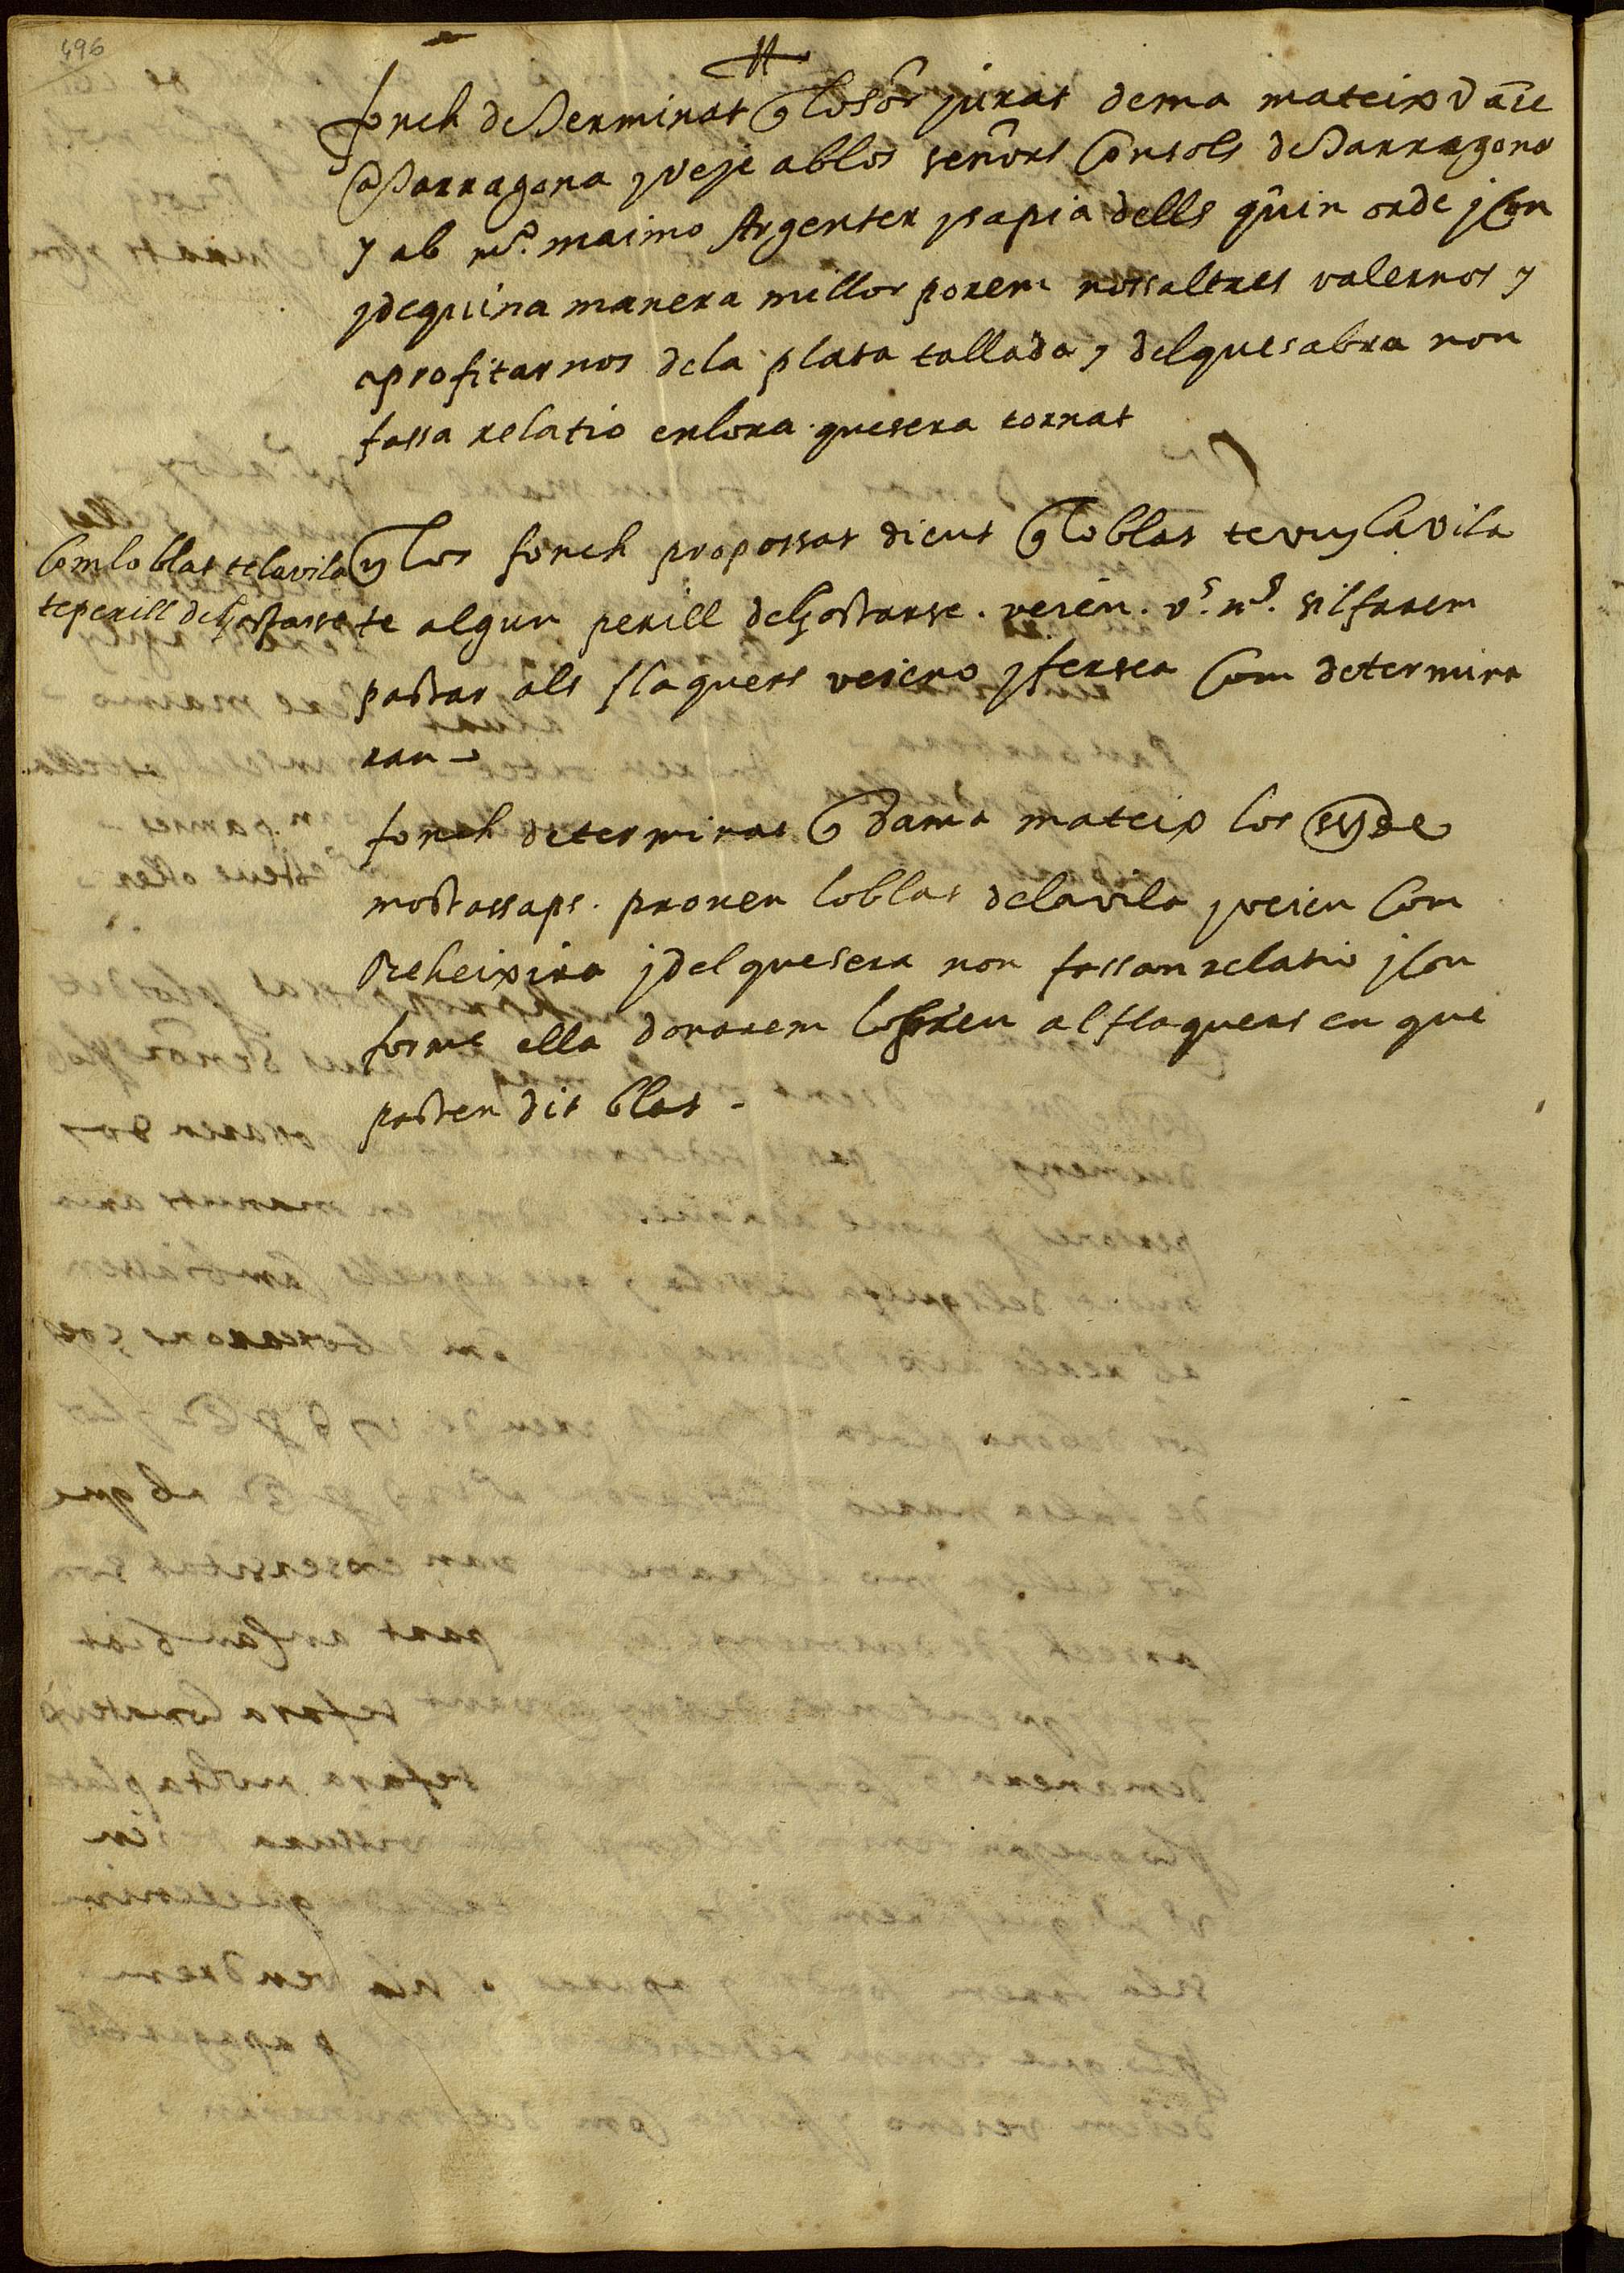 496
fonch determinat q lo Sor jurat dema mateix vaie
a Tarragona y veje ab los señors Consols de Tarragona
y ab mº. maimo Argenter y sapia dells quin orde y con
y de quina manera millor porem nosaltres valernos y
aprofitarnos de la plata tallada y del que sabra non
fassa relatio enlora que sera tornat
Com lo blat te la vila
te perill de gastarse
y los fonch propossat dient q lo blat te vuy la vila
te algun perill de gastarse. veien. vs. ms. sil farem
pastar als flaquers veieno y fersea Com determina
ran
fonch determinat q dema mateix los sy de
mostassaps. proven lo blat de la vila y veien Com
Reheixira y del que sera non fassan relatio y con
forme ella donarem lo preu al flaquers en que
pasten dit blat.